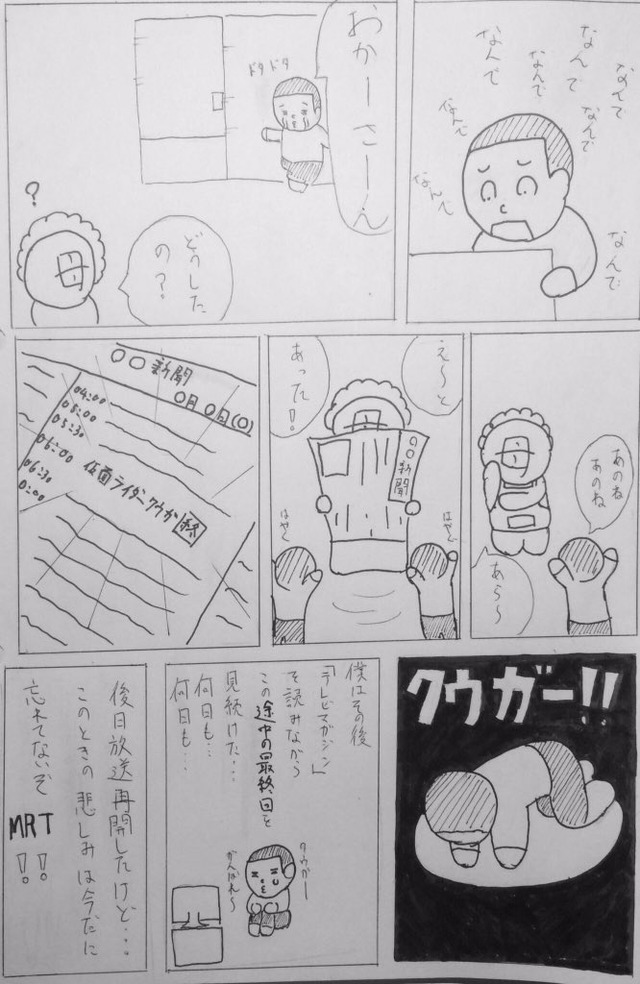 なんで
なんで
なんで
なんで
なんで
なんで
なんで
なんで
おかーさーん
ドタドタ
?
母
どうした
の?
あのね
あのね
母
あら〜
え〜と
母
〇〇新聞
あった!
はやく
はやく
〇〇新聞
〇月〇日(〇)
04:00
05:00
05:30
06:00 仮面ライダークウガ 終
06:30
0:00
クウガー!!
僕はその後
「テレビマガジン」
を読みながら
この途中の最終回を
見続けた…
何日も…
何日も…
クウガー
がんばれ〜
後日放送再開したけど…
このときの悲しみは今だに
忘れてないぞ
MRT!!